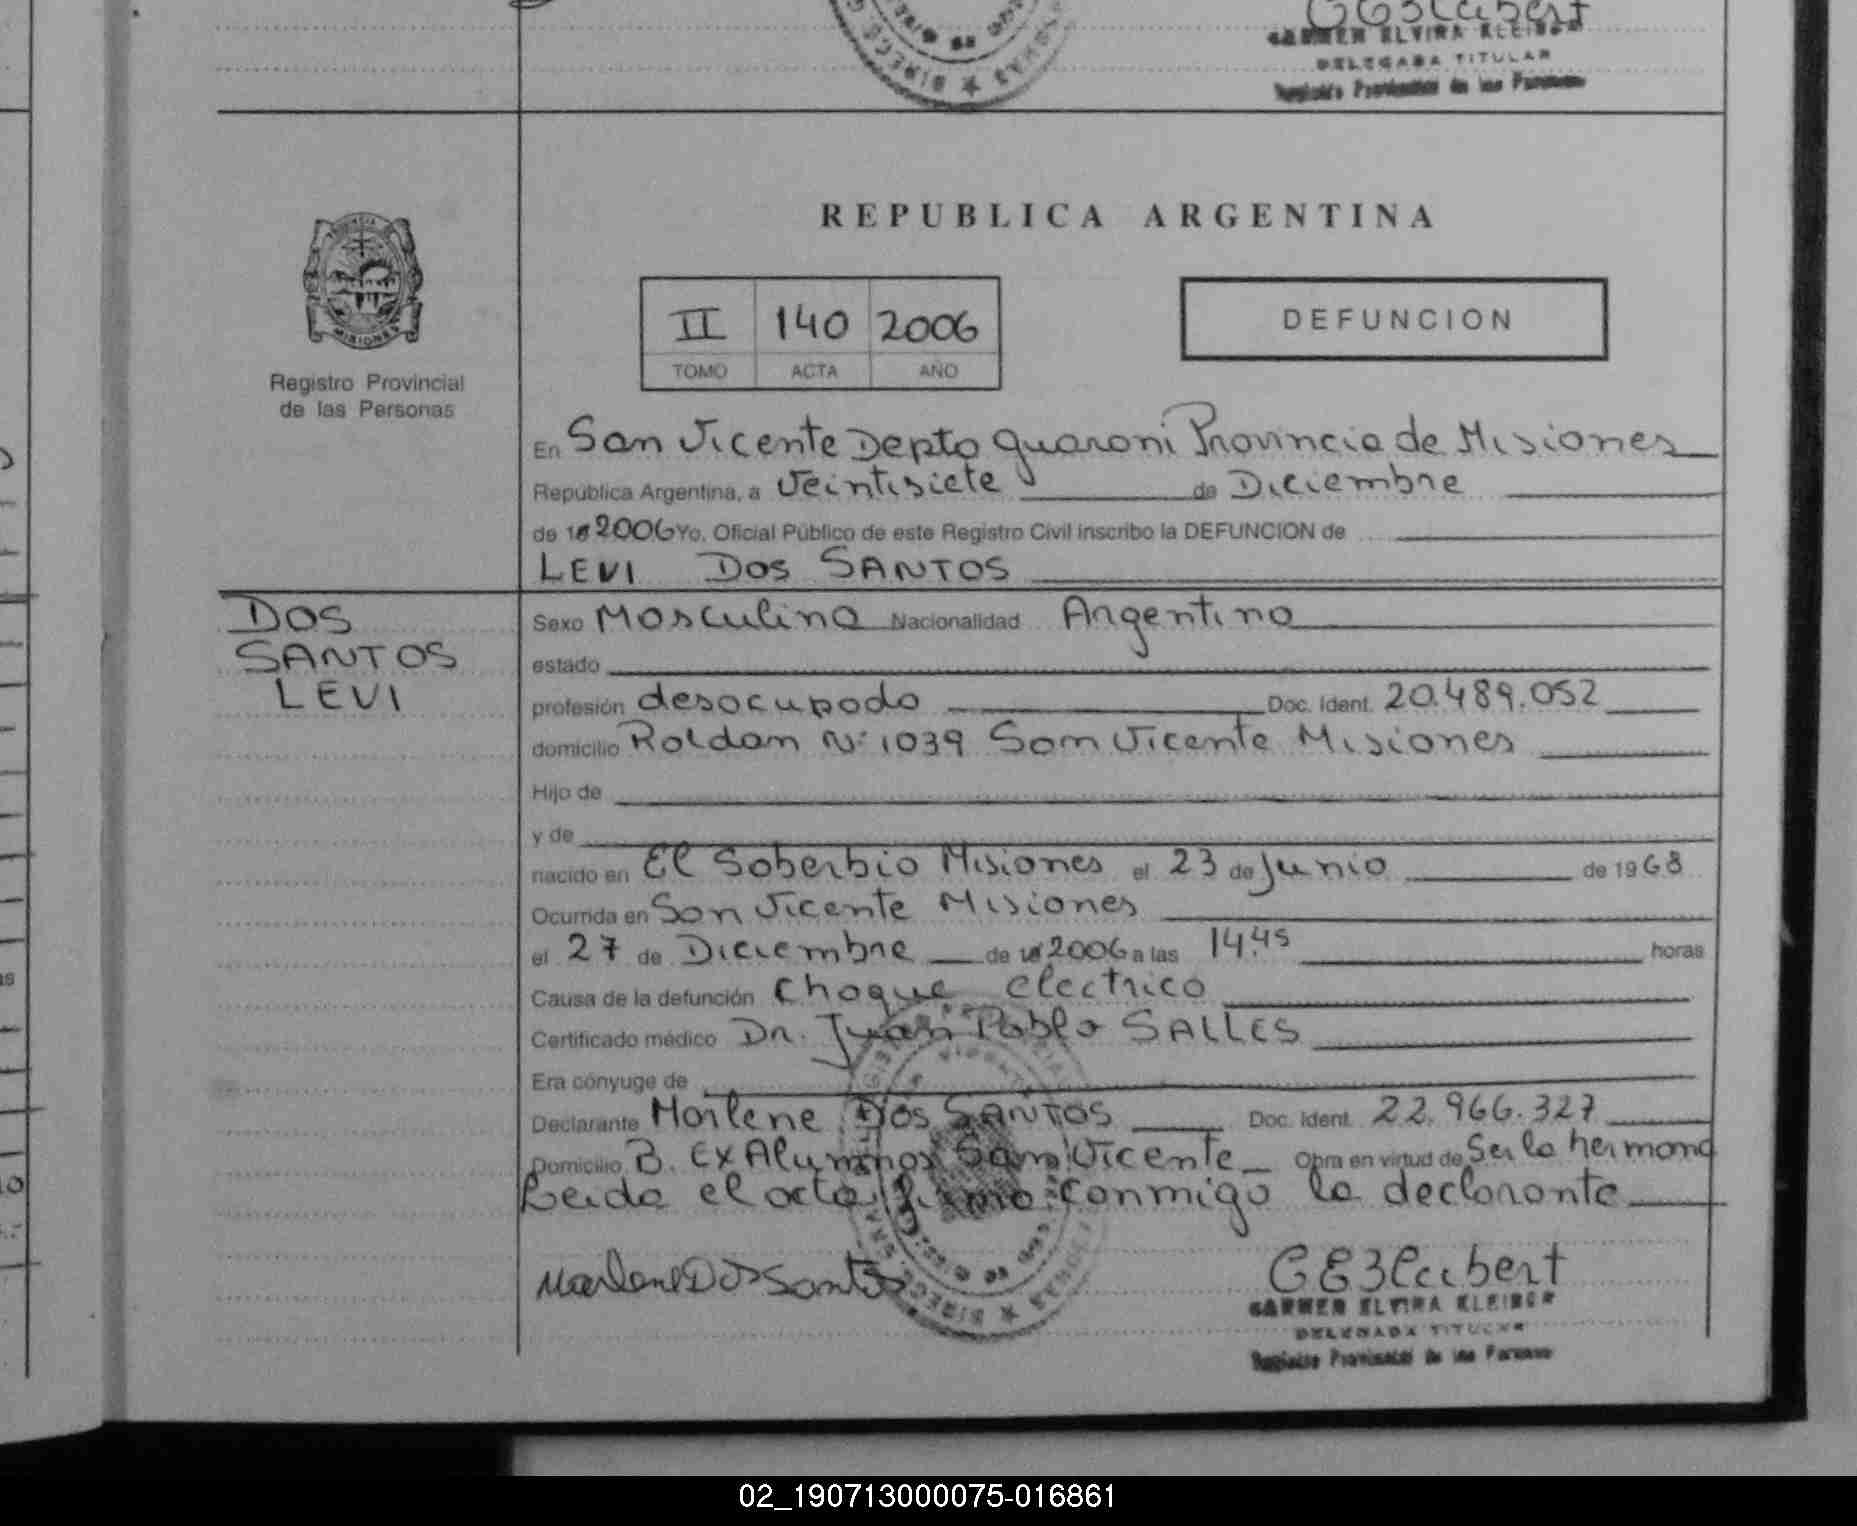 CARMEN ELVIRA KLEIBER
DELEGADA TITULAR
Registro Provincial de las Personas
REPUBLICA ARGENTINA
PROVINCIA
MISIONES
Registro Provincial
de las Personas
II 140 2006
TOMO ACTA AÑO
DEFUNCION
En San Vicente Depto Guaraní Provincia de Misiones
República Argentina, a Veintisiete de Diciembre
de 2006 Yo, Oficial Público de este Registro Civil inscribo la DEFUNCION de
LEVI DOS SANTOS
DOS
SANTOS
LEVI
Sexo Masculino Nacionalidad Argentino
estado
profesión desocupado Doc. Ident. 20.489.052
domicilio Roldan Nº 1039 San Vicente Misiones
Hijo de
y de
nacido en El Soberbio Misiones el 23 de Junio de 1968
Ocurrida en San Vicente Misiones
el 27 de Diciembre de 2006 a las 14.45 horas
Causa de la defunción Choque electrico
Certificado médico Dr. Juan Pablo SALLES
Era cónyuge de
Declarante Marlene Dos SANTOS Doc. Ident. 22.966.327
Domicilio B. Ex Alumnos San Vicente Obra en virtud de Ser la hermana
Leida el acta firma conmigo la declarante
Marlene Dos Santos
CARMEN ELVIRA KLEIBER
DELEGADA TITULAR
Registro Provincial de las Personas
02_190713000075-016861